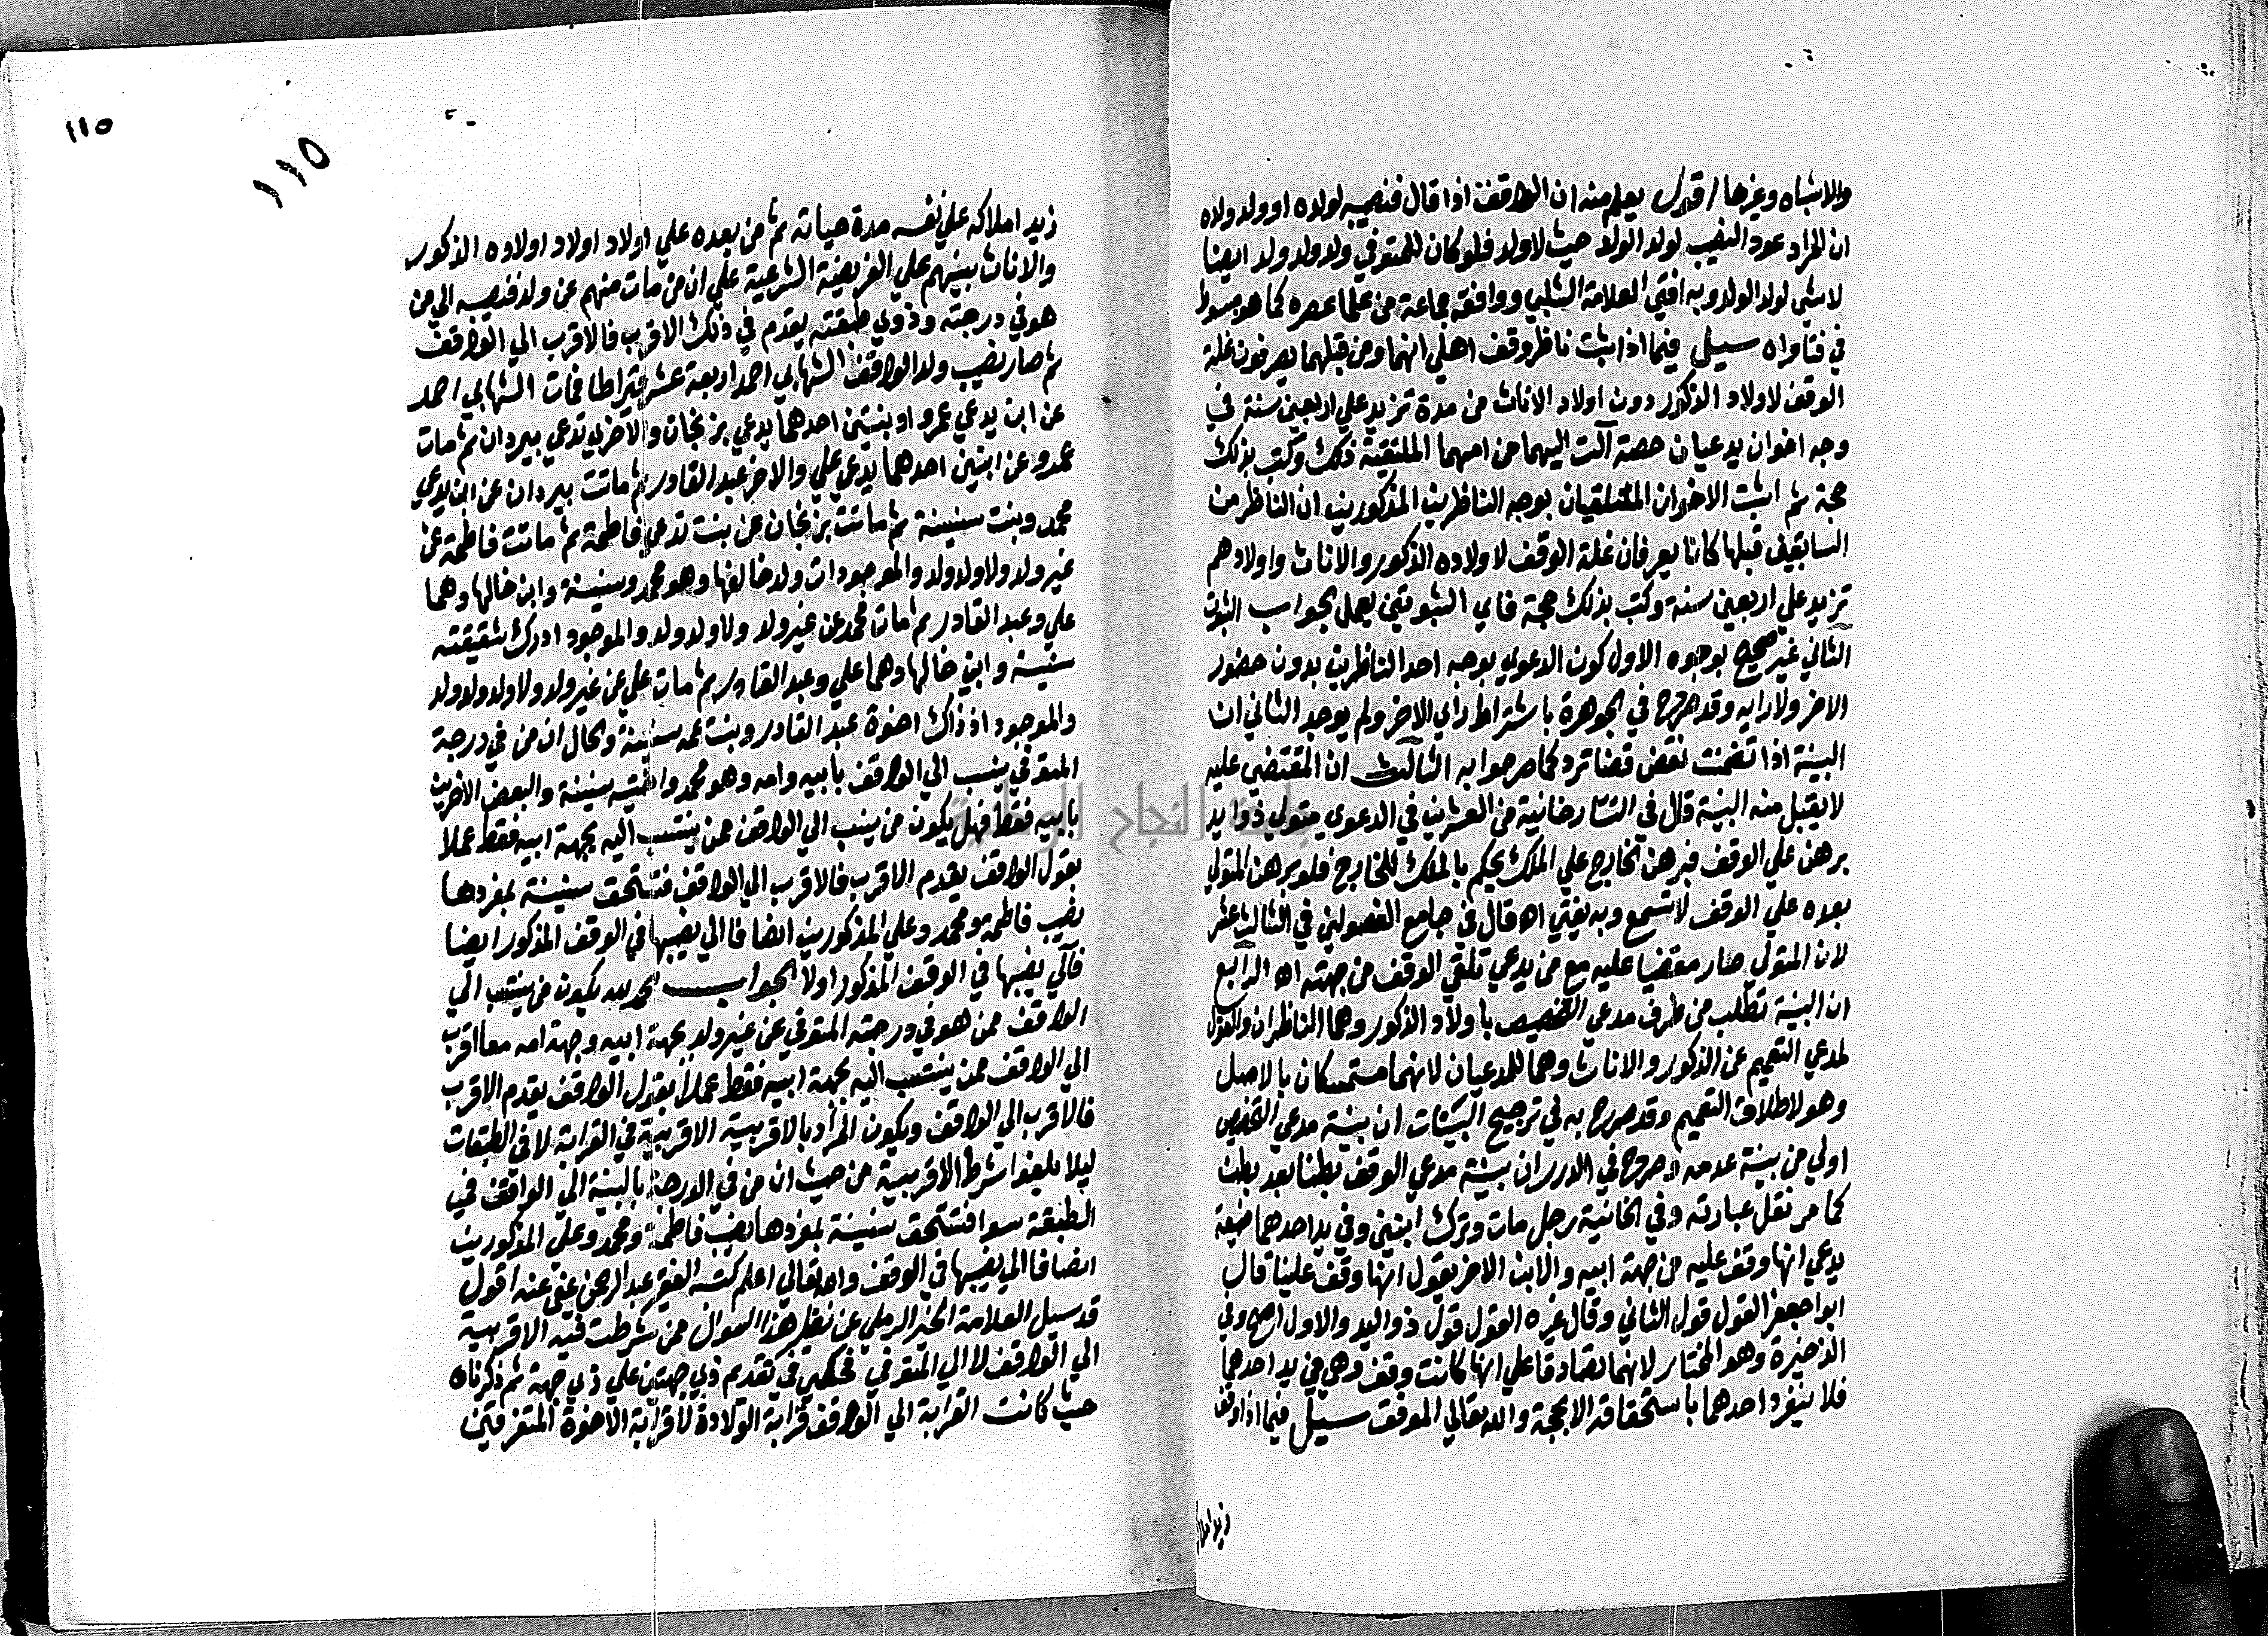 والاشباه وغيرها اقول يعلم منه ان الواقف اذا قال فنصيبه لولده او ولد ولده
ان المراد عود النصيب لولد الولد حيث لا ولد فلو كان للمتوفي ولد وولد ولد ايضا
لا شي لولد الولد وبه افتي العلامة الشلبي ووافقه جماعة من علما عصره كما هو مبسوط
في فتاواه سيل فيما اذا اثبت ناظر وقف اهلي انهما ومن قبلهما يصرفون غلة
الوقف لاولاد الذكور دون اولاد الاناث من مدة تزيد علي اربعين سنة في
وجه اخوان يدعيان حصة آلت اليهما من امهما المتلقية ذلك وكتب بذلك
حجة ثم اثبت الاخوان المتلقيان بوجه الناظرين المذكورين ان الناظر من
السابقين قبلها كانا يصرفان غلة الوقف لاولاده الذكور والاناث واولادهم
تزيد علي اربعين سنة وكتب بذلك حجة فاي الثبوتين يعمل بجواب الثبوت
الثاني غير صحيح بوجوه الاول كون الدعوي بوجه احد الناظرين بدون حضور
الاخر ولا رايه وقد صرح في الجوهرة باشتراط راي الاخر ولم يوجد الثاني ان
البينة اذا تضمنت نقض قضا ترد كما صرحوا به الثالث ان المقتضي عليه
لا يقبل منه البينة قال في التتارخانية من العشرين في الدعوي متولي ذوا يد
برهن علي الوقف فبرهن الخارج علي الملك يحكم بالملك للخارج فلو برهن المتولي
بعده علي الوقف لا تسمع وبه يفتي اه قال في جامع الفصولين في الثالث عشر
لان المتولي صار مقضيا عليه مع من يدعي تلقي الوقف من جهته اه الرابع
ان البينة تطلب من طرف مدعي التخصيص باولاد الذكور وهما الناظران والقول
لمدعي التعميم عن الذكور والاناث وهما للمدعيان لانهما متمسكان بالاصل
وهو لاطلاقه التعميم وقد صرح به في ترجيح البينات ان بينة مدعي التخصيص
اولي من بينة عدمه وصرح في الدرر ان بينة مدعي الوقف بطنا بعد بطن
كما مر نقل عبارته وفي الخانية رجل مات وترك ابنين وفي يد احدهما ضيعة
يدعي انها وقف عليه من جهة ابيه والابن الاخر يقول انها وقف علينا قال
ابوا جعفر القول قول الثاني وقال غيره القول قول ذو اليد والاول اصح وفي
الذخيرة وهو المختار لانهما تصادقا علي انها كانت وقف وهي في يد احدهما
فلا ينفرد احدهما باستحقاقه الا بحجة والله تعالي الموفق سيل فيما اذا وقف
زيد املاكه
١١٥
١١٥
زيد املاكه علي نفسه مدة حياته ثم من بعده علي اولاد اولاد اولاده الذكور
والاناث بينهم علي الفريضة الشرعية علي ان من مات منهم عن ولد فنصيبه الي من
هو في درجته وذوي طبقته يقدم في ذلك الاقرب فالاقرب الي الواقف
ثم صار نصيب ولد الواقف الشهابي احمد اربعة عشر قيراطا فمات الشهابي احمد
عن ابن يدعي عمرو او بنتين احدهما يدعي بزنجان والاخري تدعي بيردان ثم مات
عمرو عن ابنين احدهما يدعي علي والاخر عبد القادر ثم ماتت بيردان عن ابن يدعي
محمد وبنت سنينة ثم ماتت بزنجان عن بنت تدعي فاطمة ثم ماتت فاطمة عن
غير ولد ولا ولد ولد والموجودات ولد خالفها وهو محمد وسنينة وابن خالها وهما
علي وعبد القادر ثم مات محمد عن غير ولد ولا ولد ولد والموجود ادرك شقيقته
سنينة وابني خالها وهما علي وعبد القادر ثم مات علي عن غير ولد ولا ولد ولد ولد
والموجود اذ ذاك اخوة عبد القادر وبنت عمه سنينة والحال ان من في درجة
المتوفي ينسب الي الواقف بابيه وامه وهو محمد واخته سنينة والبعض الاخرين
بابيه فقط فهل يكون من ينسب الي الواقف ممن ينتسب اليه بجهة ابيه فقط عملا
بقول الواقف يقدم الاقرب فالاقرب الي الواقف فتستحق سنينة بمفردها
نصيب فاطمة ومحمد وعلي المذكورين انضافا الي نصيبها في الوقف المذكور ايضا
فآلي نصيبها في الوقف المذكور اولا الجواب الحمد لله يكون من ينتسب الي
الواقف ممن هو في درجته المتوفي عن غير ولد بجهة ابيه وجهة امه معا اقرب
الي الواقف ممن ينتسب اليه بجهة ابيه فقط عملا بقول الواقف يقدم الاقرب
فالاقرب الي الواقف ويكون المراد بالاقربية الاقربية في القرابة لا في الطبقات
ليلا يلغوا شرط الاقربية من حيث ان من في الدرجة بالنسبة الي الواقف في
الطبقة سوا فتستحق سنينة بمفردها نصيب فاطمة ومحمد وعلي المذكورين
انضافا الي نصيبها في الوقف والله تعالي اعلم كتبه الفقير عبد الرحمن عفي عنه اقول
قد سيل العلامة الخير الرملي عن نظير هذا السوال ممن شرطت فيه الاقربية
الي الواقف لا الي المتوفي فحكمي في تقديم ذي جهتين علي ذي جهة ثم ذكرناه
حيث كانت القرابة الي الواقف قرابة الولادة لا قرابة الاخوة المتفرقين
جامعة النجاح الوطنية